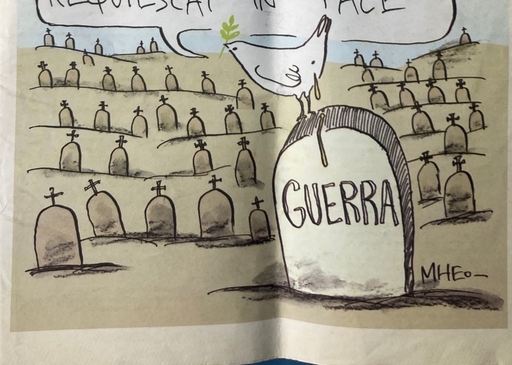 REQUIESCAT IN PACE
GUERRA
MHEO